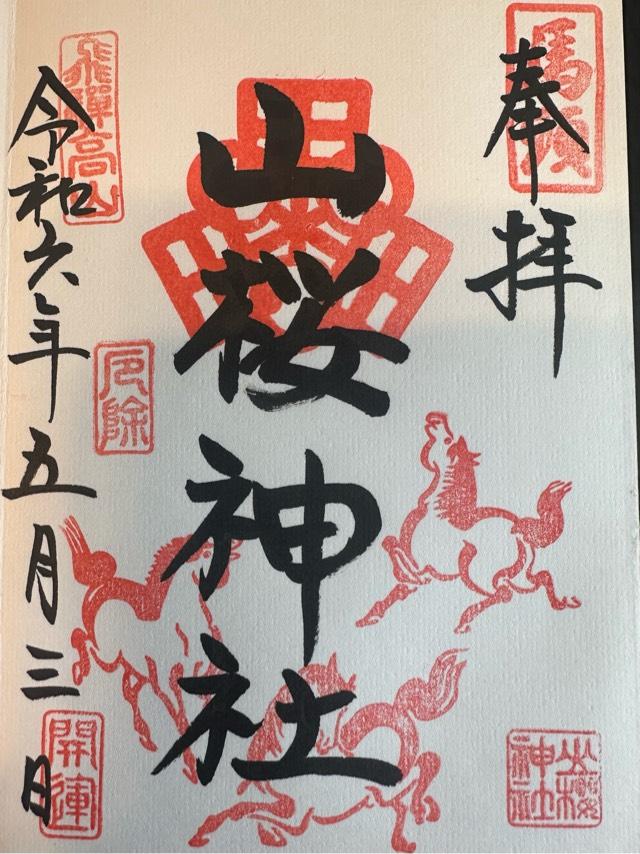 馬頭
奉拝
山桜神社
山櫻
神社
飛騨高山
厄除
開運
令和六年五月三日